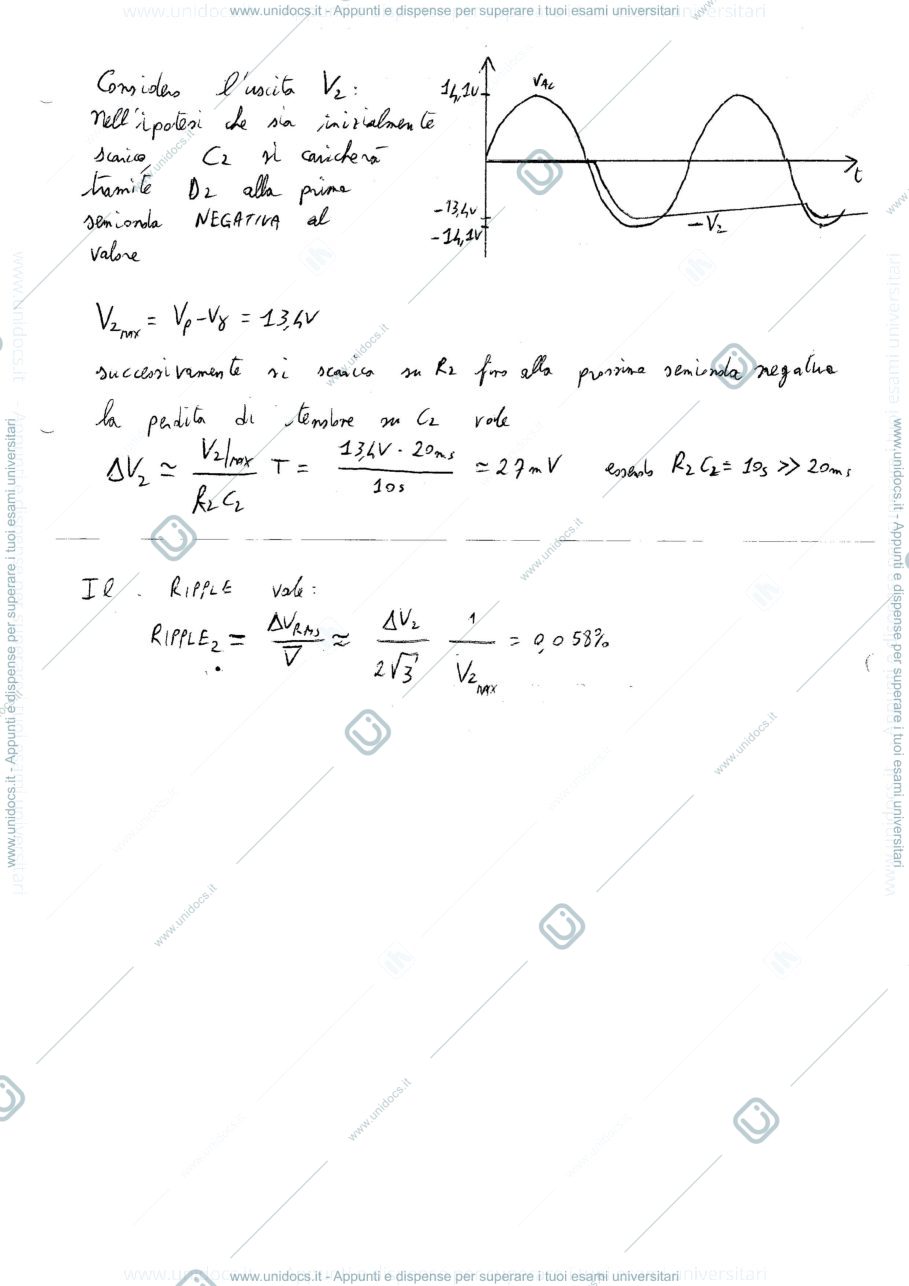 www.unidocs.it - Appunti e dispense per superare i tuoi esami universitari
Considero l'uscita V2:
nell'ipotesi che sia inizialmente
scarico, C2 si caricherà
tramite D2 alla prima
semionda NEGATIVA al
valore
14,1V
VAC
t
-13,4V
-14,1V
-V2
V2max = Vp-Vγ = 13,4V
successivamente si scarica su R2 fino alla prossima semionda negativa
la perdita di tensione su C2 vale
ΔV2 ≃ V2|max / R2 C2 T = 13,4V · 20ms / 10s ≃ 27mV essendo R2 C2 = 10s >> 20ms
Il RIPPLE vale:
RIPPLE2 = ΔVRMS / V̅ ≈ ΔV2 / 2√3 1 / V2MAX = 0,058%
www.unidocs.it - Appunti e dispense per superare i tuoi esami universitari
www.unidocs.it - Appunti e dispense per superare i tuoi esami universitari
www.unidocs.it - Appunti e dispense per superare i tuoi esami universitari
www.unidocs.it
www.unidocs.it
www.unidocs.it
www.unidocs.it
www.unidocs.it
www.unidocs.it